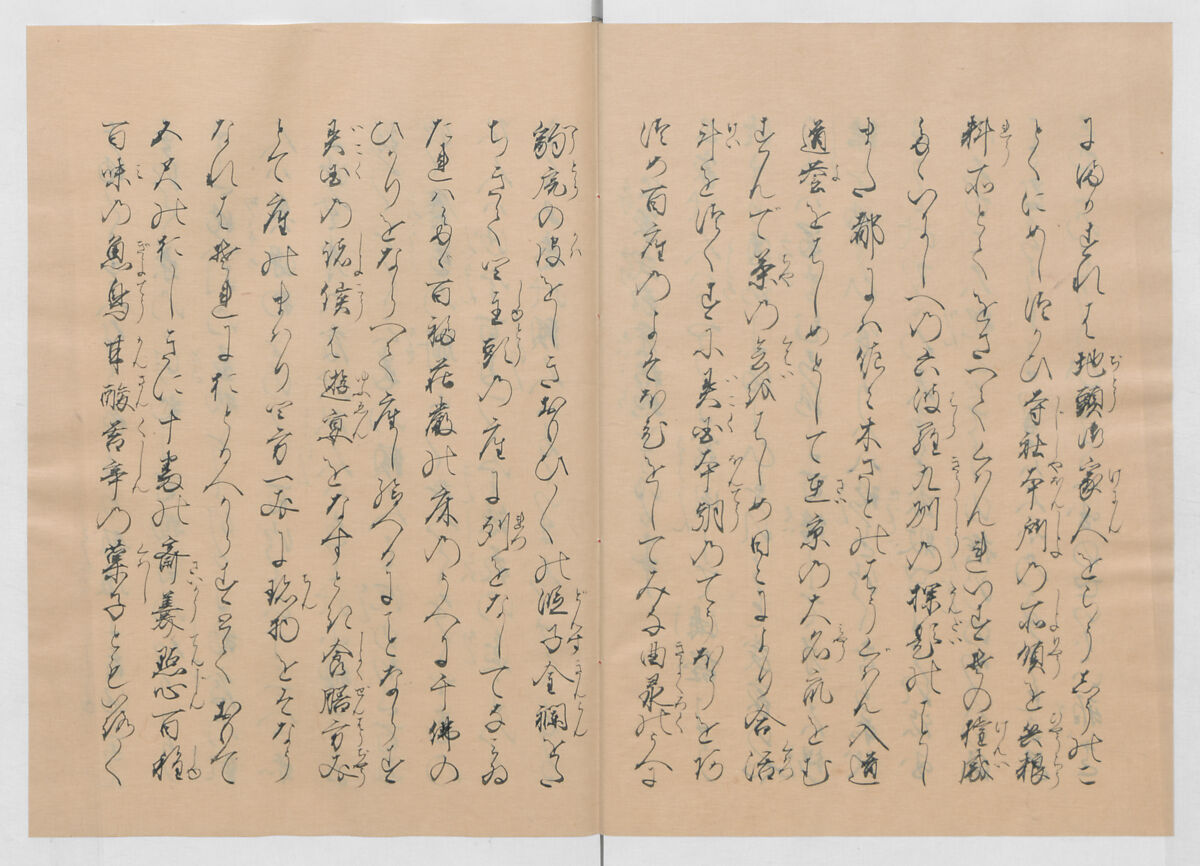 にまかすれは地頭御家人をらうしうのこ
とくにめしつかひ寺社本所の所領を兵粮
料所とてをさへてくはんれいすその権威
たゝいにしへの六波羅九州の探題のことし
また都にハ佐々木さとのはうくはん入道
道誉をはしめとして在京の大名衆をむ
すんで茶の会をはしめ日々により合活
計をつくすに異国本朝のてうほうをあ
つめ百座のよそほひをしてみな曲彔のうへに
豹虎の皮をしきおもひ〱の段子金襴をた
ちきて四主頭の座に列をなしてなみゐ
たれハたゝ百福荘厳の床のうへに千佛の
ひかりをならへて座し給へるにことならす
異国の諸侯は遊宴をなすとき食膳方丈
とて座のまはり四方一丈に珍物をそなう
なれはそれにおとるへからすとておもて
五尺のおしきに十番の斎羹点心百種
百味の魚鳥甘酸苦辛の菓子ともいろ〱